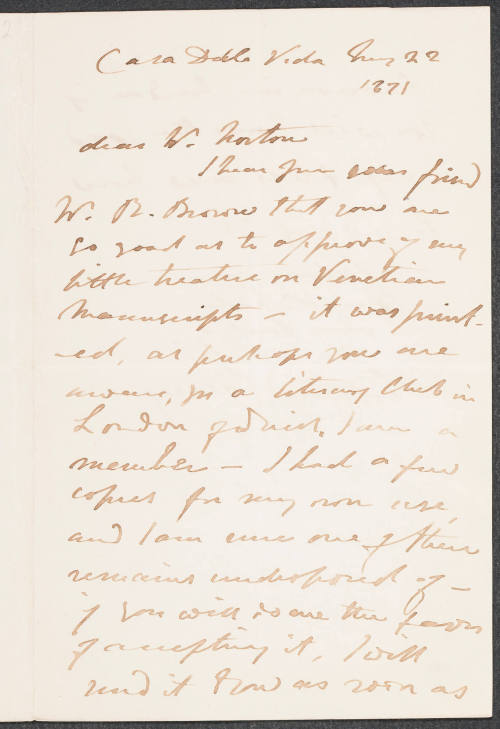 Casa Della Vida May 22
1871
dear Mr. Norton
I hear from our friend
Mr. R. Brown that you are
so good as to approve of my
little treatise on Venetian
Manuscripts – it was print-
-ed, as perhaps you are
aware, for a literary Club in
London of which I am a
member – I had a few
copies for my own use,
and I am sure one of them
remains undisposed of –
if you will do me the favor
of accepting it, I will
send it to you as soon as